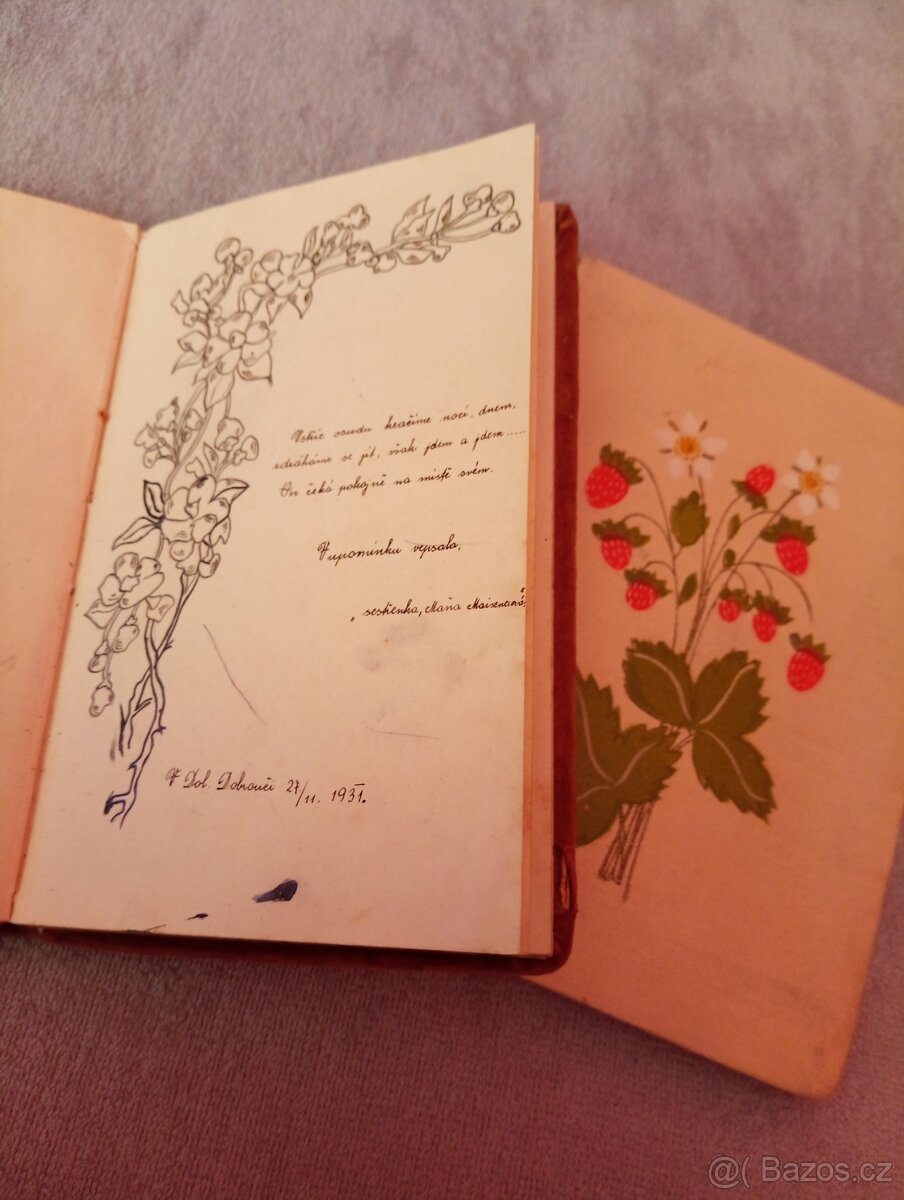 Vstříc osudu kráčíme nocí, dnem,
zdráháme se jít, však jdem a jdem.....
On čeká pokojně na místě svém.
Vupomínku vepsala,
„sestřenka, Máňa
V Dol. Dobrouči 27/11. 1931.
@( Bazos.cz